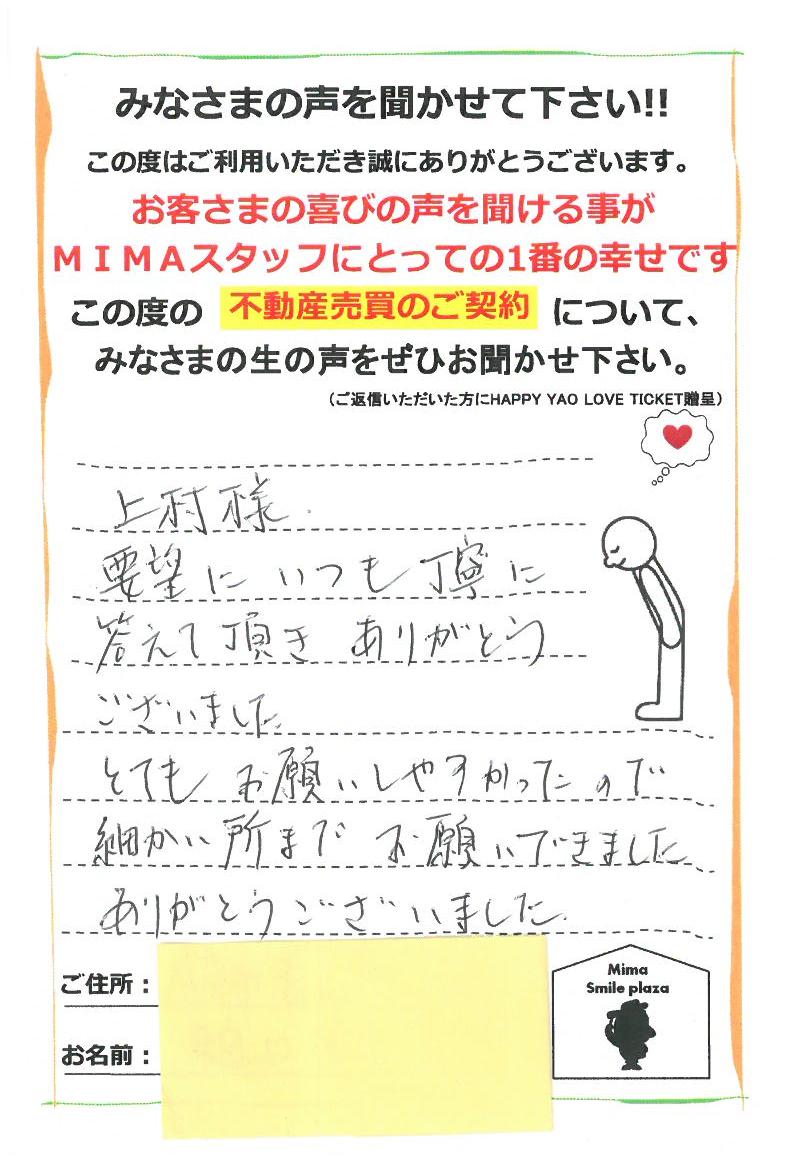 みなさまの声を聞かせて下さい!!
この度はご利用いただき誠にありがとうございます。
お客さまの喜びの声を聞ける事が
ＭＩＭＡスタッフにとっての1番の幸せです
この度の 不動産売買のご契約 について、
みなさまの生の声をぜひお聞かせ下さい。
（ご返信いただいた方にHAPPY YAO LOVE TICKET贈呈）
上村様.
要望に いつも 丁寧に
答えて頂き ありがとう
ございました
とても お願いしやすかったので
細かい所まで お願いできました
ありがとうございました.
ご住所：
お名前：
Mima
Smile plaza